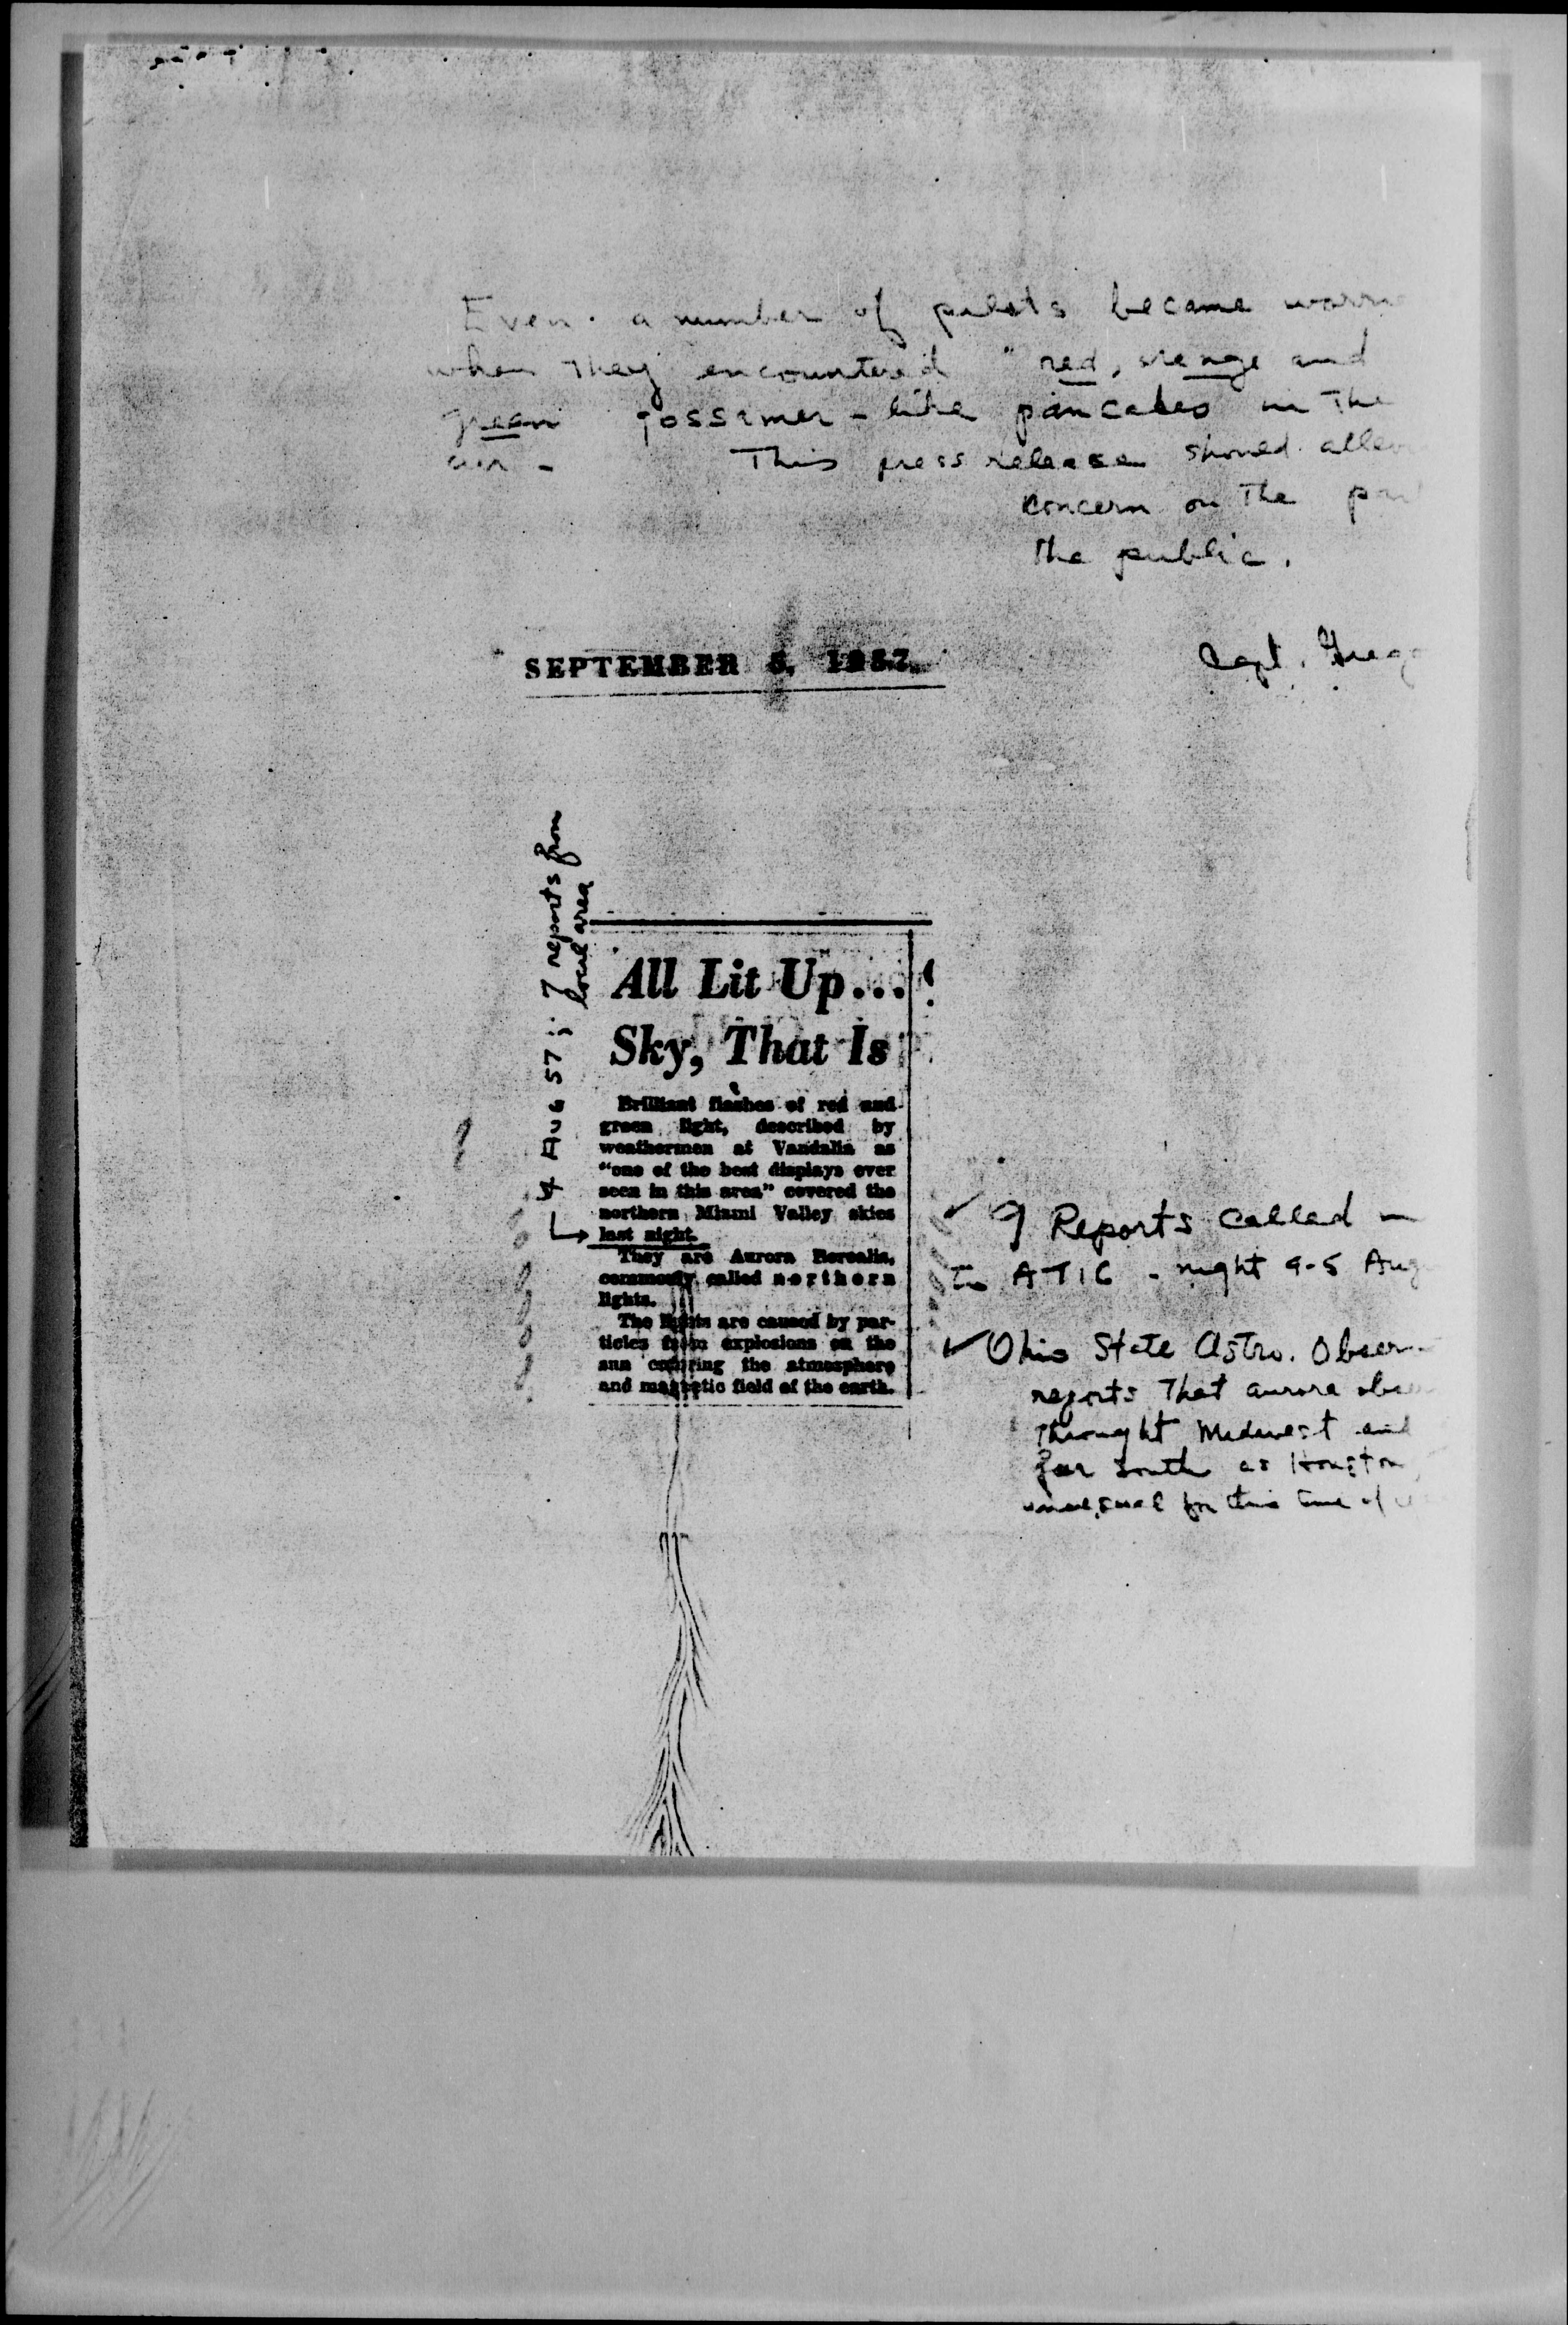 Even a number of pilots became
when they encountered "red, orange and
green gossamer-like pancakes in the
air -
This press release should
concern on the
the public.
SEPTEMBER 5, 1957.
Capt.
4 AUG 57 ; 7 reports from
local area
All Lit Up...
Sky, That Is
Brilliant flashes of red and
green light, described by
weathermen at Vandalia as
"one of the best displays ever
seen in this area" covered the
northern Miami Valley skies
last night.
They are Aurora Borealis,
commonly called northern
lights.
The lights are caused by par-
ticles from explosions on the
sun entering the atmosphere
and magnetic field of the earth.
✓ 9 Reports called -
to ATIC - night 4-5 Aug
✓ Ohio State Astro. Obser-
reports that aurora
throught Midwest and
far south as Houston,
unusual for this time of